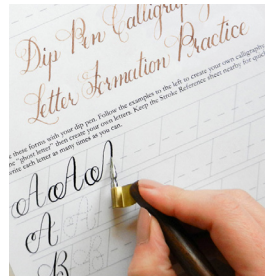 Dip Pen Calligraphy
Letter Formation Practice
e these forms with your dip pen. Follow the examples to the left to create your own calligraphy
e "ghost letter" then create your own letters. Keep the Stroke Reference sheet nearby for quick
write each letter as many times as you can.
A A A
A
B